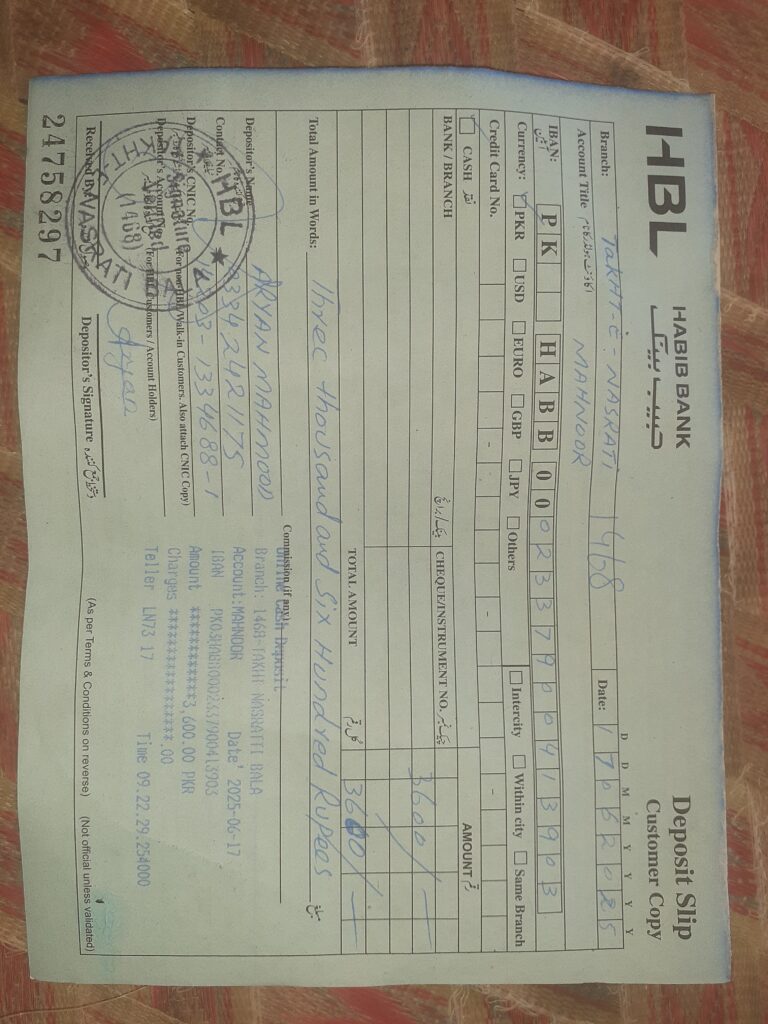 HBL HABIB BANK
حبیب بینک
Deposit Slip
Customer Copy
Branch: TAKHT-E-NASRATI 1468
Date: 17062025
D D M M Y Y Y Y
Account Title MAHNOOR
IBAN: PK HABB 00 0233790041 3903
Currency: PKR USD EURO GBP JPY Others Intercity Within city Same Branch
Credit Card No. - - -
CASH نقد
AMOUNT رقم
BANK / BRANCH CHEQUE/INSTRUMENT NO.
3600/-
TOTAL AMOUNT 3600/-
Total Amount in Words: Three thousand and Six Hundred Rupees
Commission (if any)
Depositor's Name ARYAN MAHMOOD
Contact No. 03342421175
Depositor's CNIC No. 03-1334688-1
(For non HBL/Walk-in Customers. Also attach CNIC Copy)
Depositor's Account No.
(For HBL Customers / Account Holders)
Online Cash Deposit
Branch: 1468-TAKHT NASRATTI BALA
Account:MAHNOOR Date' 2025-06-17
IBAN PK03HABB0002337900413903
Amount **************3,600.00 PKR
Charges ******************.00
Teller LN73 17 Time 09.22.29.254000
HBL
Signature
Verified
(1468)
Aryan
Received By
Depositor's Signature
(As per Terms & Conditions on reverse) (Not official unless validated)
24758297